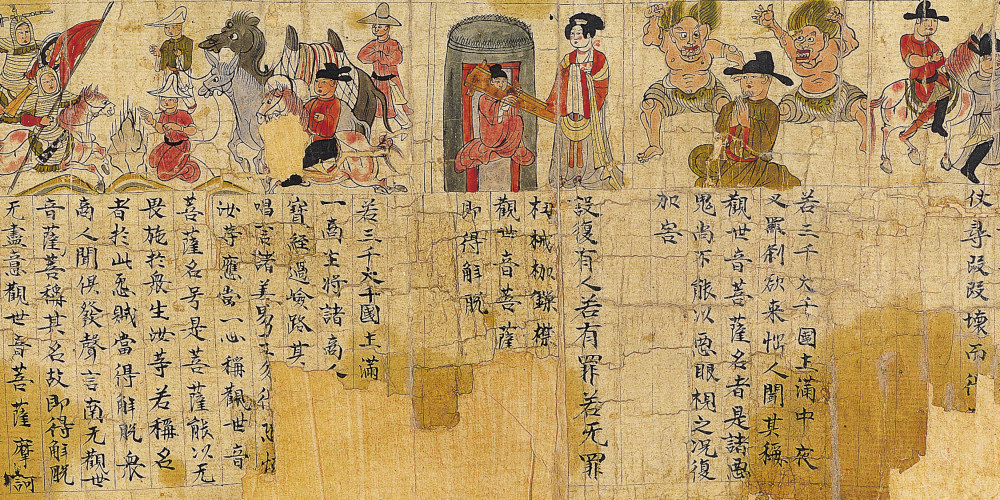 仗尋段段壞而
若三千大千國土滿中夜
叉羅刹欲来惱人聞其稱
觀世音菩薩名者是諸惡
鬼尚不能以惡眼視之况復
加害
設復有人若有罪若无罪
杻械枷鏁檢
觀世音菩薩
即得解脫
若三千大千國土滿
一商主將諸商人
寶經過嶮路其
唱言諸善男子勿得恐怖
汝等應當一心稱觀世音
菩薩名号是菩薩能以无
畏施於衆生汝等若稱名
者於此怨賊當得解脫衆
商人聞俱發聲言南无觀世
音薩菩稱其名故即得解脫
无盡意觀世音菩薩摩訶